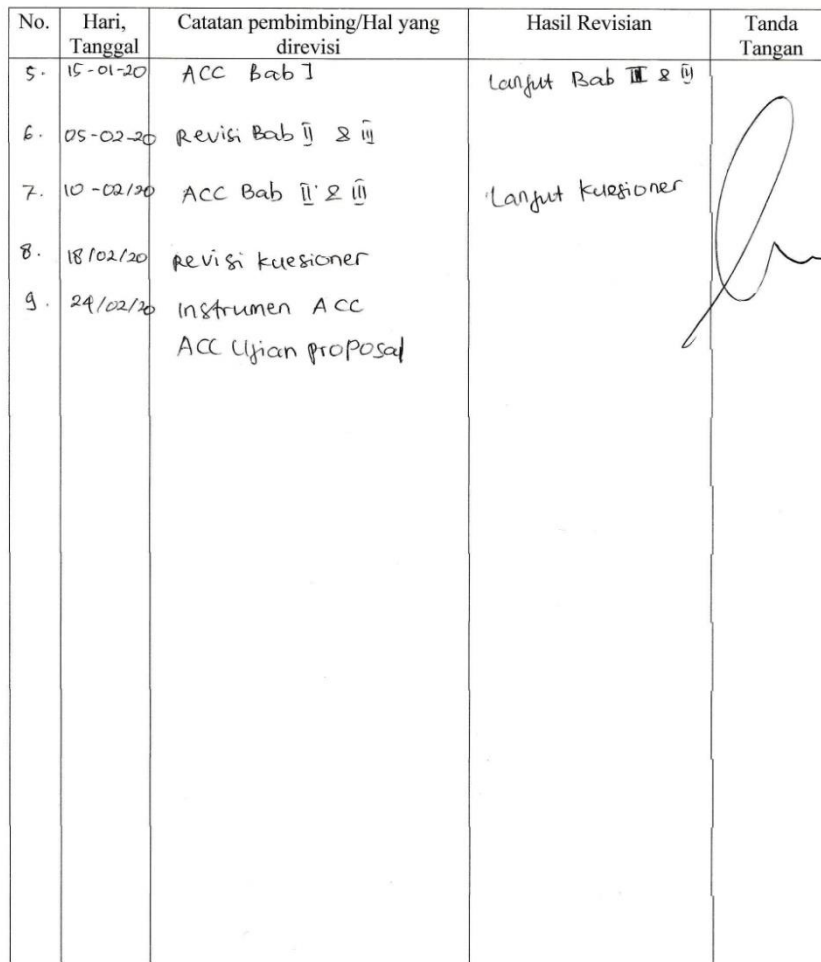 No. Hari, Tanggal Catatan pembimbing/Hal yang direvisi Hasil Revisian Tanda Tangan
5. 15-01-20 ACC Bab I Lanjut Bab II & III
6. 05-02-20 Revisi Bab II & III
7. 10-02/20 ACC Bab II & III Lanjut Kuesioner
8. 18/02/20 Revisi kuesioner
9. 24/02/20 Instrumen ACC
ACC Ujian proposal